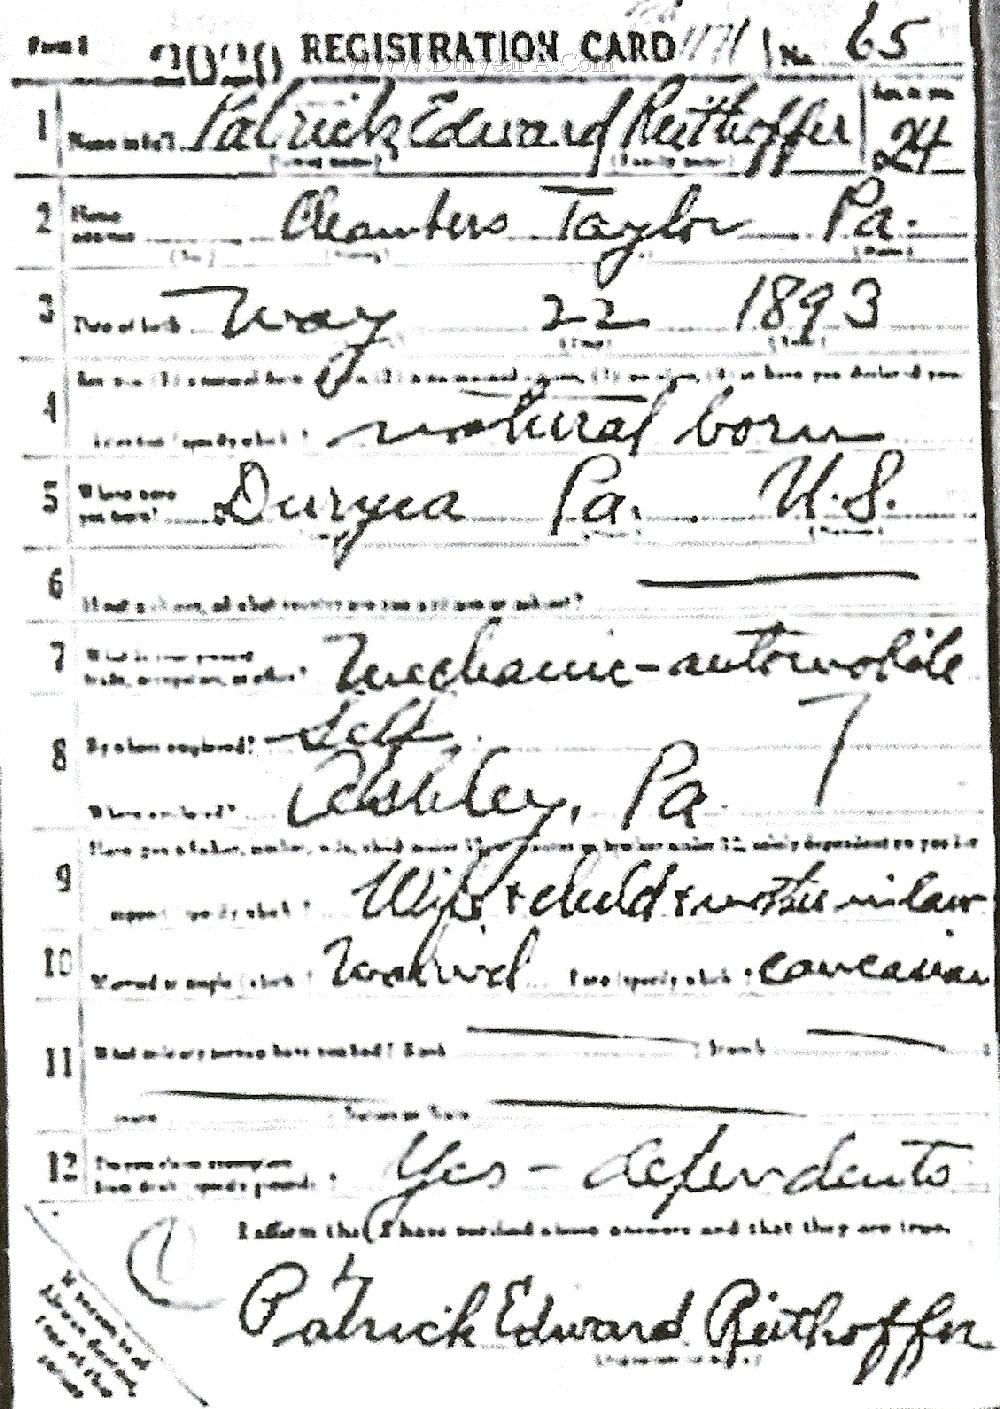 Form 1 2020 REGISTRATION CARD No. 65
www.DuryeaPA.com
1 Name in full Patrick Edward Reithoffer Age in yrs. 24
(Given name) (Family name)
2 Home address Chambers Taylor Pa.
(No.) (Street) (State)
3 Date of birth May 22 1893
(Day) (Year)
Are you (1) a natural born (2) a naturalized citizen, (3) an alien, (4) or have you declared your
4 intention (specify which)? natural born
5 Where were you born? Duryea Pa. U.S.
(Nation)
6 If not a citizen, of what country are you a citizen or subject?
7 What is your present trade, occupation, or office? Mechanic-automobile
8 By whom employed? Self
Where employed? Ashley, Pa 7
Have you a father, mother, wife, child under 12, or a sister or brother under 12, solely dependent on you for
9 support (specify which)? Wife + child + mother in law
10 Married or single (which)? Married Race (specify which)? Caucasian
11 What military service have you had? Rank ; branch ;
years Nation or State
12 Do you claim exemption from draft (specify grounds)? Yes - dependents
I affirm that I have verified above answers and that they are true.
Patrick Edward Reithoffer
(Signature or mark)